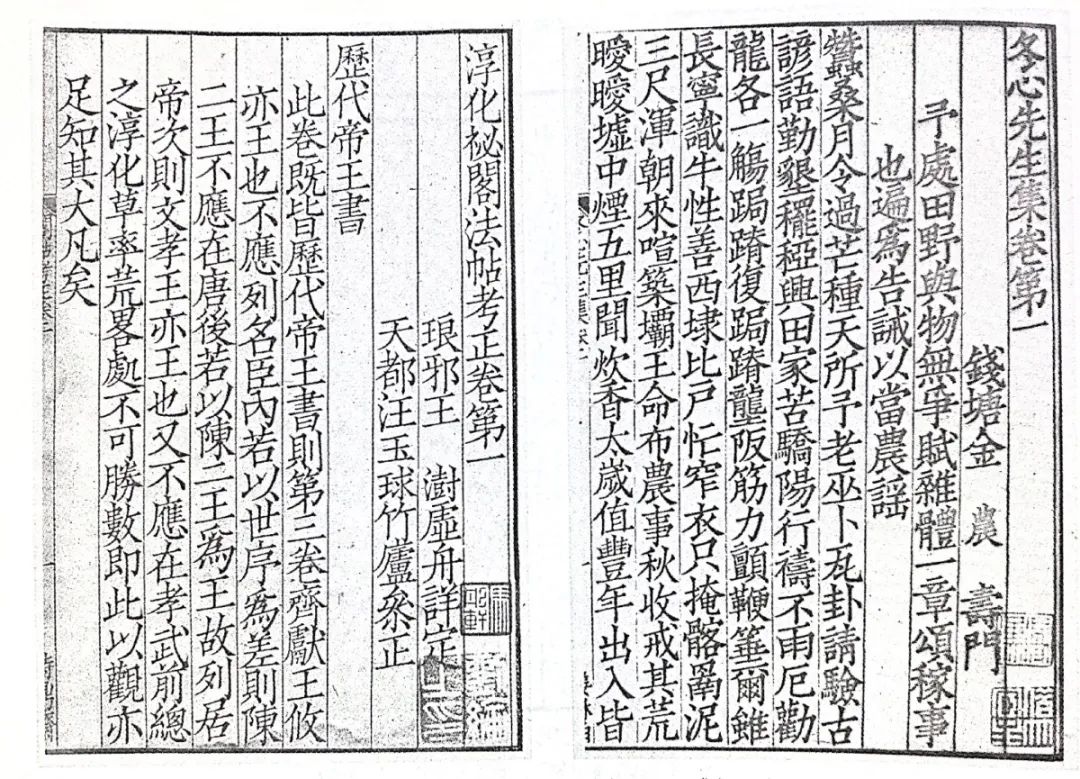 冬心先生集卷第一
錢塘金 農 壽門
予處田野與物無爭賦雜體一章頌稼事
也遍為告誡以當農謡
蠶桑月令過芒種天所予老巫卜瓦卦請驗古
諺語勤墾䆉稏興田家苦驕陽行禱不雨厄勸
龍各一觴跼蹐復跼蹐壟阪筋力顫鞭箠爾雖
長寧識牛性善西埭比戶忙窄衣只掩髂罱泥
三尺渾朝來喧築壩王命布農事秋收戒其荒
曖曖墟中煙五里聞炊香太歲值豐年出入皆
淳化祕閣法帖考正卷第一
琅邪王 澍虛舟詳定
天都汪玉球竹廬叅正
歷代帝王書
此卷既皆歷代帝王書則第三卷齊獻王攸
亦王也不應列名臣內若以世序為差則陳
二王不應在唐後若以陳二王為王故列居
帝次則文孝王亦王也又不應在孝武前總
之淳化草率荒畧處不可勝數即此以觀亦
足知其大凡矣